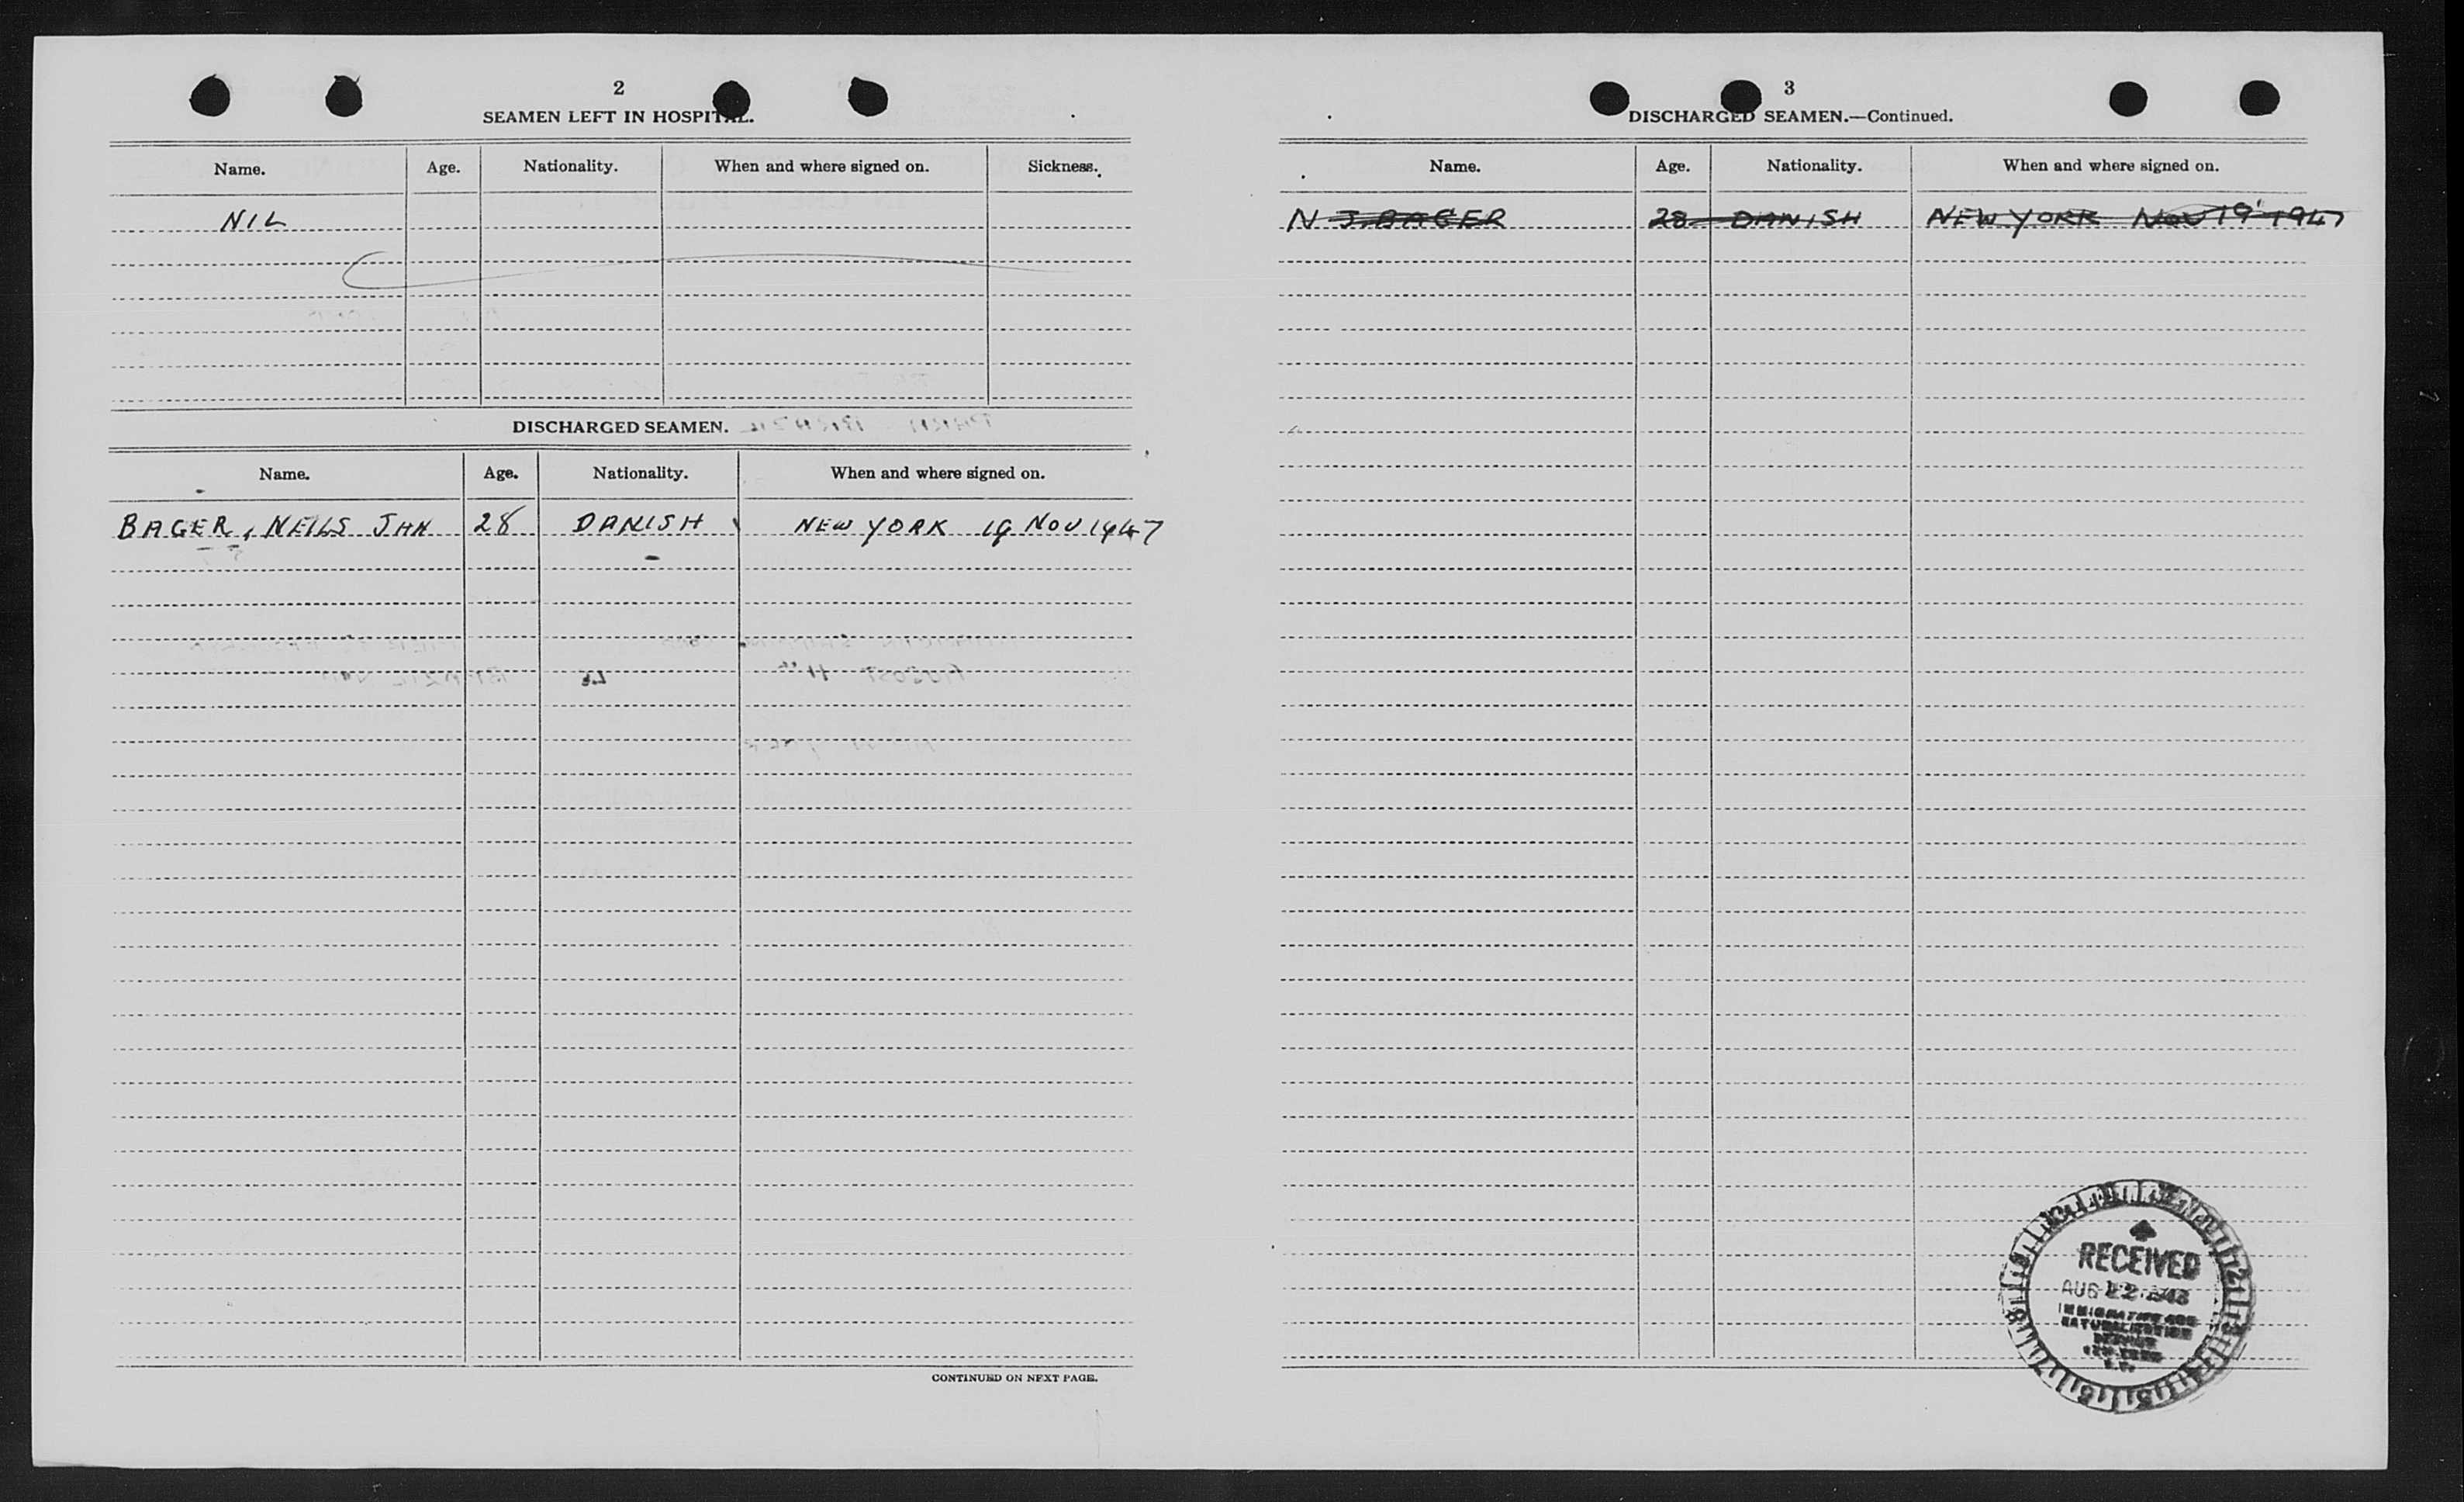 2
SEAMEN LEFT IN HOSPITAL.
Name. Age. Nationality. When and where signed on. Sickness.
NIL
DISCHARGED SEAMEN.
Name. Age. Nationality. When and where signed on.
BAGER, NEILS JAN 28 DANISH NEW YORK 19 NOV 1947
CONTINUED ON NEXT PAGE.
3
DISCHARGED SEAMEN.—Continued.
Name. Age. Nationality. When and where signed on.
N J. BAGER 28 DANISH NEW YORK NOV 19' 1947
RECEIVED
AUG 22
IMMIGRATION AND
NATURALIZATION
SERVICE